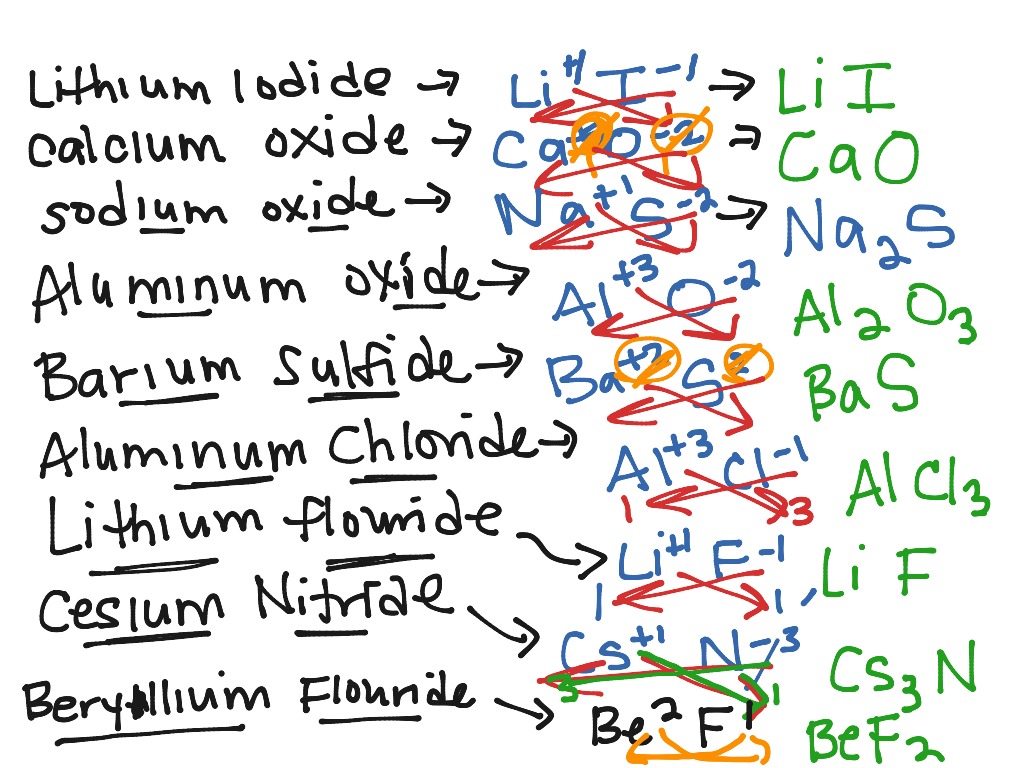 Lithium Iodide → Li+1 I-1 → LiI
calcium oxide → Ca+2 O-2 → CaO
sodium oxide → Na+1 S-2 → Na2S
Aluminum oxide → Al+3 O-2 Al2O3
Barium Sulfide → Ba+2 S-2 BaS
Aluminum Chloride → Al+3 Cl-1 AlCl3
1 3
Lithium flouride → Li+1 F-1 LiF
1 1
Cesium Nitride → Cs+1 N-3 Cs3N
3 1
Beryllium Flouride → Be2 F1 BeF2